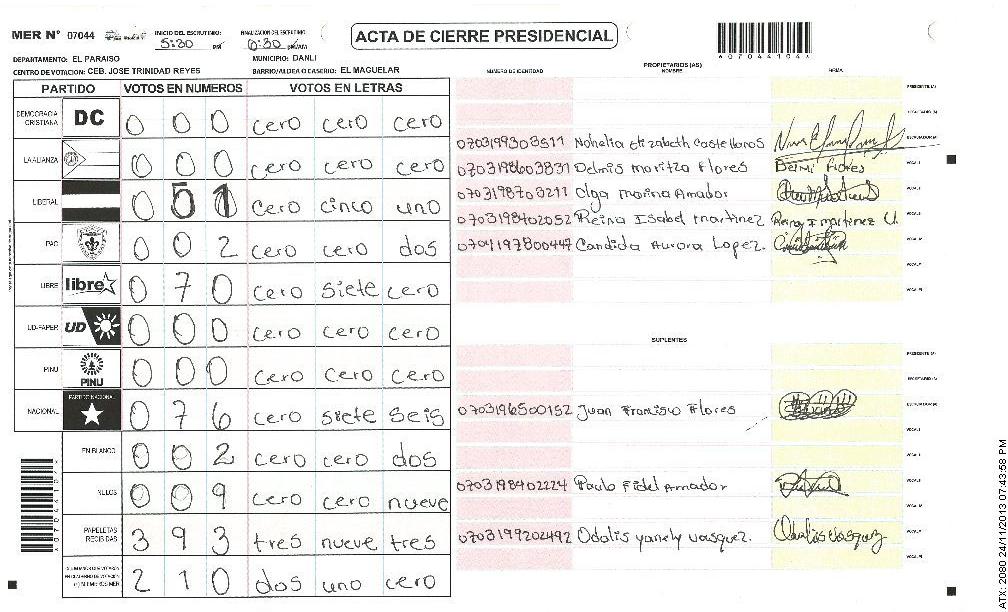 MER N° 07044 INICIO DEL ESCRUTINIO: 5:30 PM FINALIZACION DEL ESCRUTINIO 6:30 PM/AM ACTA DE CIERRE PRESIDENCIAL
A07044104A
DEPARTAMENTO: EL PARAISO MUNICIPIO: DANLI
CENTRO DE VOTACION: CEB. JOSE TRINIDAD REYES BARRIO/ALDEA O CASERIO: EL MAGUELAR
PARTIDO VOTOS EN NUMEROS VOTOS EN LETRAS
DEMOCRACIA CRISTIANA DC 0 0 0 cero cero cero
LA ALIANZA 0 0 0 cero cero cero
LIBERAL 0 5 1 cero cinco uno
PAC 0 0 2 cero cero dos
LIBRE libre 0 7 0 cero siete cero
UD-FAPER UD 0 0 0 cero cero cero
PINU PINU 0 0 0 cero cero cero
NACIONAL PARTIDO NACIONAL 0 7 6 cero siete seis
EN BLANCO 0 0 2 cero cero dos
NULOS 0 0 9 cero cero nueve
PAPELETAS RECIBIDAS 3 9 3 tres nueve tres
2 1 0 dos uno cero
PROPIETARIOS (AS)
NUMERO DE IDENTIDAD NOMBRE FIRMA
PRESIDENTE (A)
SECRETARIO (A)
0703199303511 Nohelia Elizabeth Castellanos ESCRUTADOR (A)
0703198603831 Delmis maritza Flores Delmi Flores VOCAL I
0703198703211 Olga marina Amador
0703198402052 Reina Isabel martinez Reina I martinez
0704197800447 Candida Aurora Lopez.
SUPLENTES
PRESIDENTE (A)
SECRETARIO (A)
0703196500152 Juan Francisco Flores ESCRUTADOR (A)
VOCAL I
0703198402224 Paulo Fidel Amador
0703199202492 Odalis yanely vasquez. Odalis vasquez
ATX: 2080 24/11/2013 07:43:58 PM